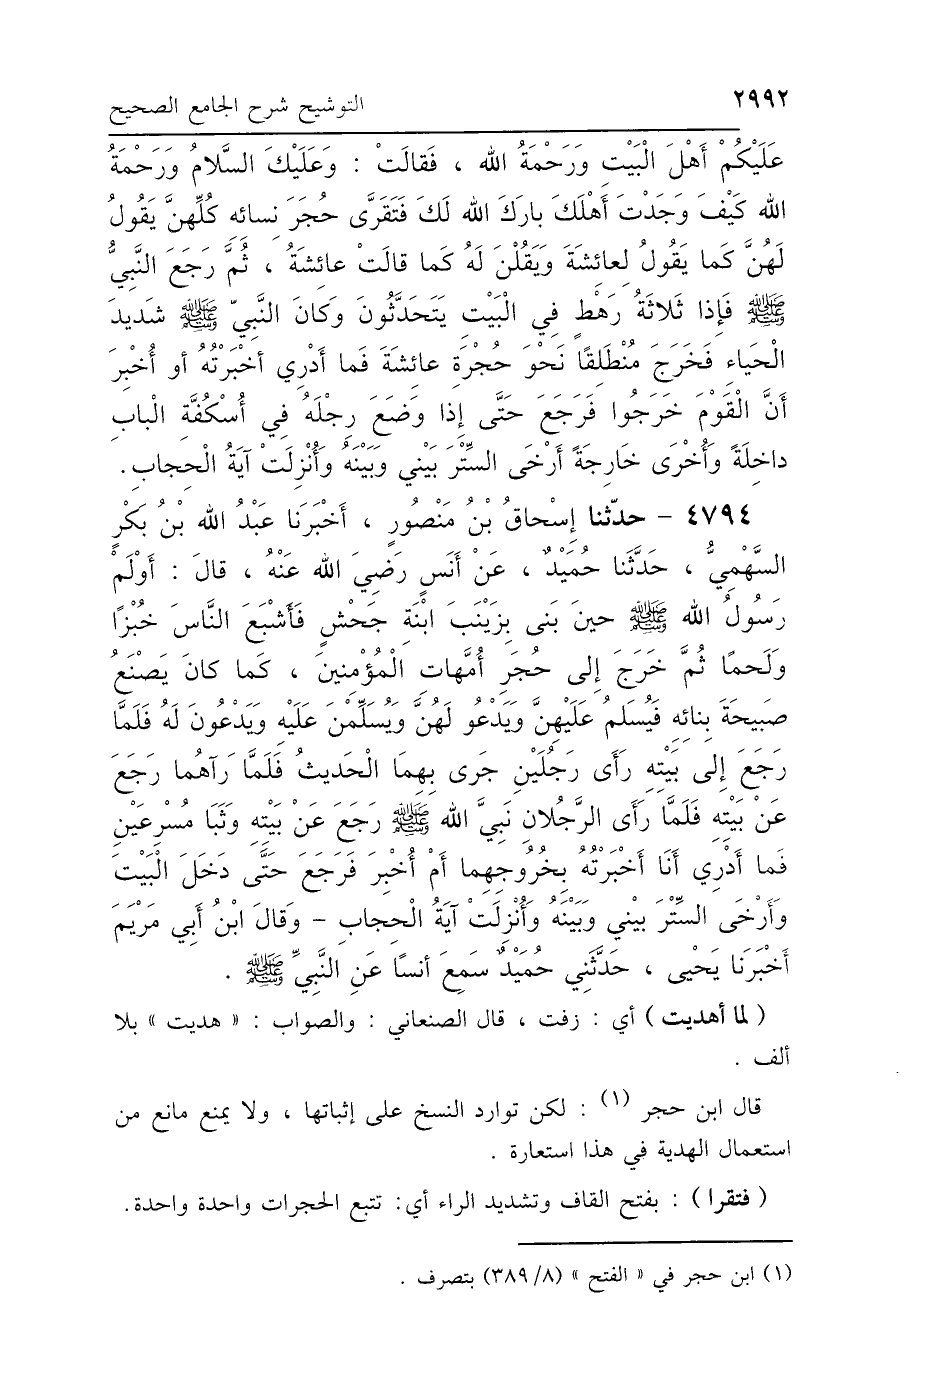 ٢٩٩٢ التوشيح شرح الجامع الصحيح
عَلَيْكُمْ أَهْلَ الْبَيْتِ وَرَحْمَةُ الله ، فَقَالَتْ : وَعَلَيْكَ السَّلَامُ وَرَحْمَةُ
الله كَيْفَ وَجَدْتَ أَهْلَكَ بارَكَ الله لَكَ فَتَقَرَّى حُجَرَ نِسائِهِ كُلِّهِنَّ يَقُولُ
لَهُنَّ كَما يَقُولُ لِعائِشَةَ وَيَقُلْنَ لَهُ كَما قالَتْ عائِشَةُ ، ثُمَّ رَجَعَ النَّبِيُّ
ﷺ فَإِذا ثَلَاثَةُ رَهْطٍ فِي الْبَيْتِ يَتَحَدَّثُونَ وَكانَ النَّبِيّ ﷺ شَدِيدَ
الْحَياءِ فَخَرَجَ مُنْطَلِقًا نَحْوَ حُجْرَةِ عائِشَةَ فَما أَدْرِي أَخْبَرْتُهُ أَو أُخْبِرَ
أَنَّ الْقَوْمَ خَرَجُوا فَرَجَعَ حَتَّى إِذا وَضَعَ رِجْلَهُ فِي أُسْكُفَّةِ الْبابِ
داخِلَةً وَأُخْرَى خارِجَةً أَرْخَى السِّتْرَ بَيْنِي وَبَيْنَهُ وَأُنْزِلَتْ آيَةُ الْحِجابِ.
٤٧٩٤ - حدّثنا إِسْحاقُ بْنُ مَنْصُورٍ ، أَخْبَرَنَا عَبْدُ الله بْنُ بَكْرٍ
السَّهْمِيُّ ، حَدَّثَنا حُمَيْدٌ ، عَنْ أَنَسٍ رَضِيَ الله عَنْهُ ، قالَ : أَوْلَمَ
رَسُولُ الله ﷺ حِينَ بَنى بِزَيْنَبَ ابْنَةِ جَحْشٍ فَأَشْبَعَ النَّاسَ خُبْزًا
وَلَحمًا ثُمَّ خَرَجَ إِلى حُجَرِ أُمَّهاتِ الْمُؤْمِنِينَ ، كَما كانَ يَصْنَعُ
صَبِيحَةَ بِنائِهِ فَيُسَلِّمُ عَلَيْهِنَّ وَيَدْعُو لَهُنَّ وَيُسَلِّمْنَ عَلَيْهِ وَيَدْعُونَ لَهُ فَلَمَّا
رَجَعَ إِلى بَيْتِهِ رَأَى رَجُلَيْنِ جَرى بِهِما الْحَدِيثُ فَلَمَّا رَآهُما رَجَعَ
عَنْ بَيْتِهِ فَلَمَّا رَأَى الرَّجُلانِ نَبِيَّ الله ﷺ رَجَعَ عَنْ بَيْتِهِ وَثَبا مُسْرِعَيْنِ
فَما أَدْرِي أَنَا أَخْبَرْتُهُ بِخُرُوجِهِما أَمْ أُخْبِرَ فَرَجَعَ حَتَّى دَخَلَ الْبَيْتَ
وَأَرْخَى السِّتْرَ بَيْنِي وَبَيْنَهُ وَأُنْزِلَتْ آيَةُ الْحِجابِ – وَقالَ ابْنُ أَبِي مَرْيَمَ
أَخْبَرَنا يَحْيى ، حَدَّثَنِي حُمَيْدٌ سَمِعَ أَنَسًا عَنِ النَّبِيِّ ﷺ .
( لما أهديت ) أي : زفت ، قال الصنعاني : والصواب : « هديت » بلا
ألف .
قال ابن حجر (١) : لكن توارد النسخ على إثباتها ، ولا يمنع مانع من
استعمال الهدية في هذا استعارة .
( فتقرا ) : بفتح القاف وتشديد الراء أي: تتبع الحجرات واحدة واحدة.
(١) ابن حجر في « الفتح » (٨/ ٣٨٩) بتصرف .